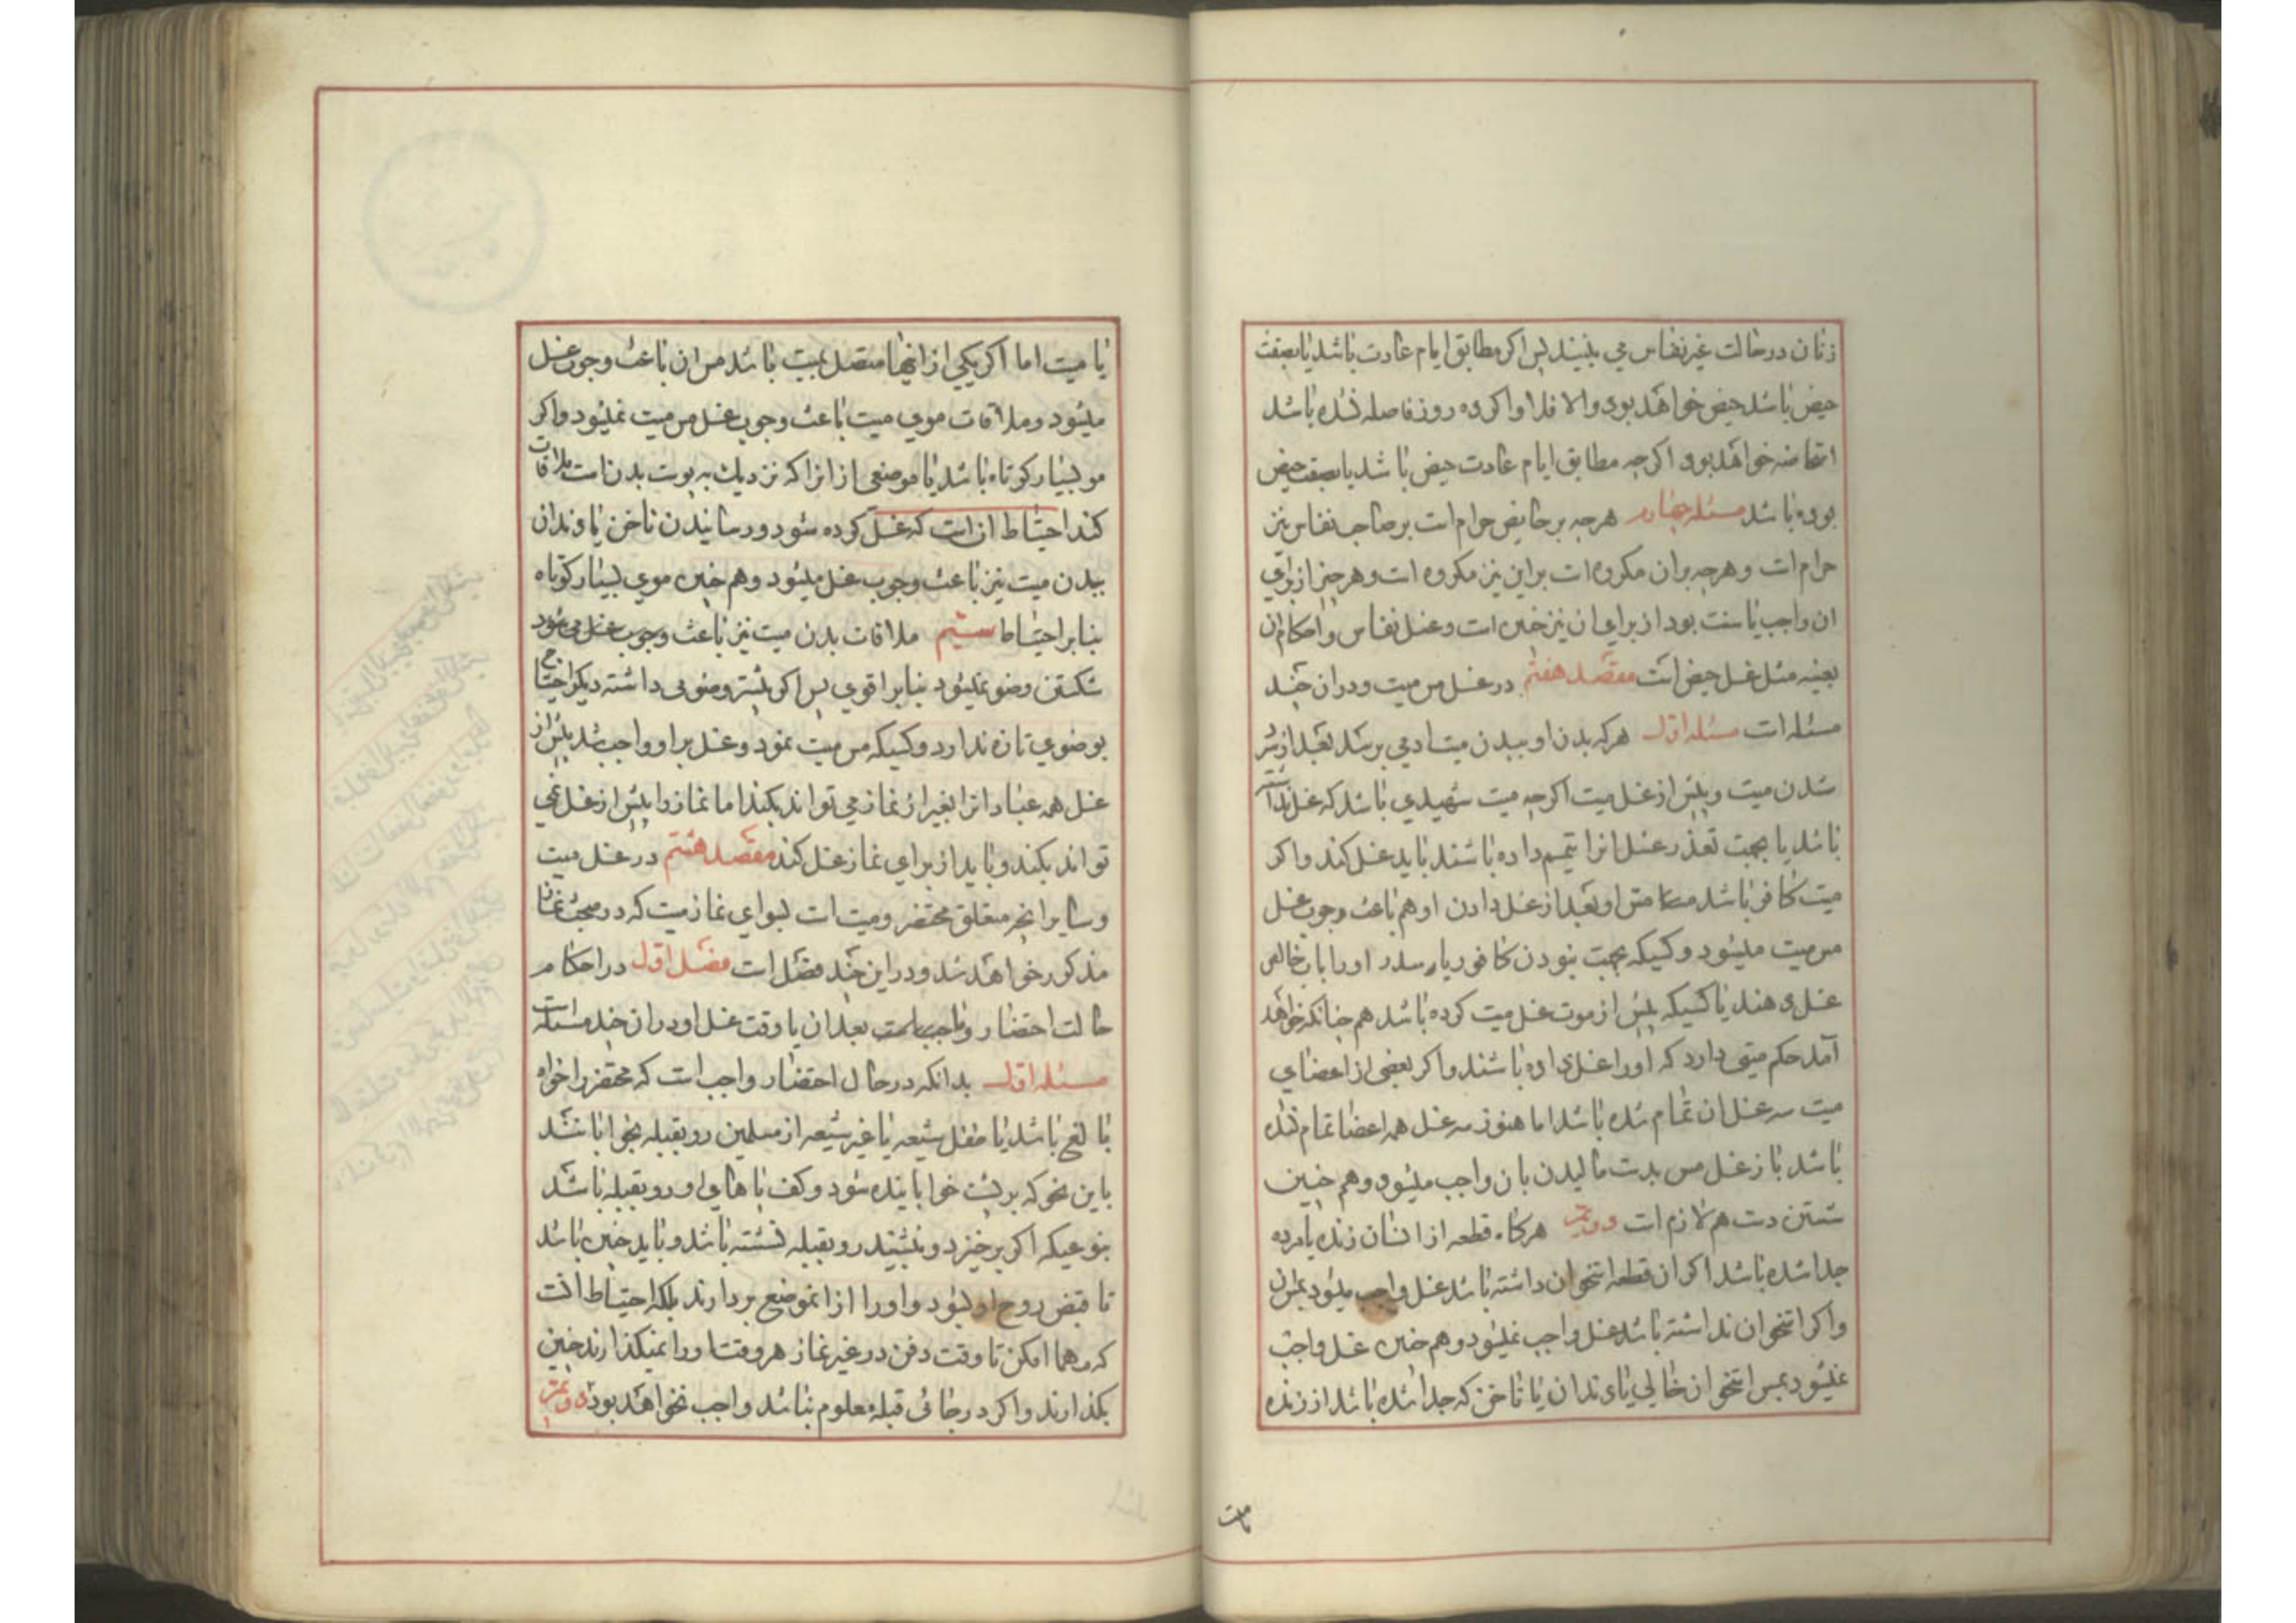 زنان در حالت غیر نفاس می بینند پس اکر مطابق ایام عادت باشد یا بصفت
حیض باشد حیض خواهد بود والا فلا و اکر ده روز فاصله نشده باشد
استحاضه خواهد بود اکرچه مطابق ایام عادت حیض باشد یا بصفت حیض
بوده باشد مسئله چهارم هرچه بر حایض حرام است بر صاحب نفاس نیز
حرام است و هرچه بر ان مکروه است بر این نیز مکروه است و هر چیز از برای
ان واجب یا سنت بود از برای ان نیز چنین است و غسل نفاس و احکام ان
بعینه مثل غسل حیض است مقصد هفتم در غسل مس میت و در ان چند
مسئله است مسئله اول هرکه بدن او ببدن میت ادمی برسد بعد از سرد
شدن میت و پیش از غسل میت اکرچه میت شهیدی باشد که غسل نداشته
باشد یا بجهت تعذر غسل انرا تیمم داده باشند باید غسل کند و اکر
میت کافر باشد مس او بعد از غسل دادن او هم باعث وجوب غسل
مس میت میشود و کسیکه بجهت نبودن کافور یا سدر او را باب خالص
غسل دهند یا کسیکه پیش از موت غسل میت کرده باشد هم چنانکه خواهد
آمد حکم میتی دارد که او را غسل داده باشند و اکر بعضی از اعضای
میت سه غسل ان تمام شده باشد اما هنوز سه غسل همه اعضا تمام نشده
باشد باز غسل مس بدست مالیدن بان واجب میشود و هم چنین
شستن دست هم لازم است دویم هرکاه قطعه از انسان زنده یا مرده
جدا شده باشد اکر ان قطعه استخوان داشته باشد غسل واجب میشود بمس ان
و اکر استخوان نداشته باشد غسل واجب نمیشود و هم چنین غسل واجب
نمیشود بمس استخوان خالی یا دندان یا ناخن که جدا شده باشد از زنده
یا میت
یا میت اما اکر یکی از اینها متصل بمیت باشد مس ان باعث وجوب غسل
میشود و ملاقات موی میت باعث وجوب غسل مس میت نمیشود و اکر
مو بسیار کوتاه باشد یا موضعی از انرا که نزدیک به پوست بدن است ملاقات
کند احتیاط ان است که غسل کرده شود و رسانیدن ناخن یا دندان
ببدن میت نیز باعث وجوب غسل میشود و هم چنین موی بسیار کوتاه
بنابر احتیاط سیم ملاقات بدن میت نیز باعث وجوب غسل می شود
شکستن وضو نمیشود بنابر اقوی پس اکر پیشتر وضوئی داشته دیکر احتیاج
بوضوی تازه ندارد و کسیکه مس میت نمود و غسل بر او واجب شد پیش از
غسل همه عبادات را بغیر از نماز می تواند بکند اما نماز را پیش از غسل نمی
تواند بکند و باید از برای نماز غسل کند مقصد هشتم در غسل میت
و سایر انچه متعلق بمحتضر و میت است سوای نماز میت که در مبحث نماز
مذکور خواهد شد و در این چند فصل است فصل اول در احکام
حالت احتضار و بعد ان تا وقت غسل او و در ان چند مسئله است
مسئله اول بدانکه در حال احتضار واجب است که محتضر را خواه
بالغ باشد یا طفل شیعه یا غیر شیعه از مسلمین رو بقبله بخوابانند
باین نحو که بر پشت خوابانیده شود و کف پاهای او رو بقبله باشد
بنوعیکه اکر برخیزد و بنشیند رو بقبله نشسته باشد و باید چنین باشد
تا قبض روح او بشود و او را از انموضع بردارند بلکه احتیاط انست
که مهما امکن تا وقت دفن در غیر نماز هر وقت او را میکذارند چنین
بکذارند و اکر در جائی قبله معلوم نباشد واجب نخواهد بود دویم